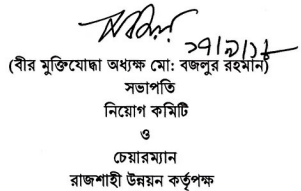 (বীর মুক্তিযোদ্ধা অধ্যক্ষ মো: বজলুর রহমান)
সভাপতি
নিয়োগ কমিটি
ও
চেয়ারম্যান
রাজশাহী উন্নয়ন কর্তৃপক্ষ